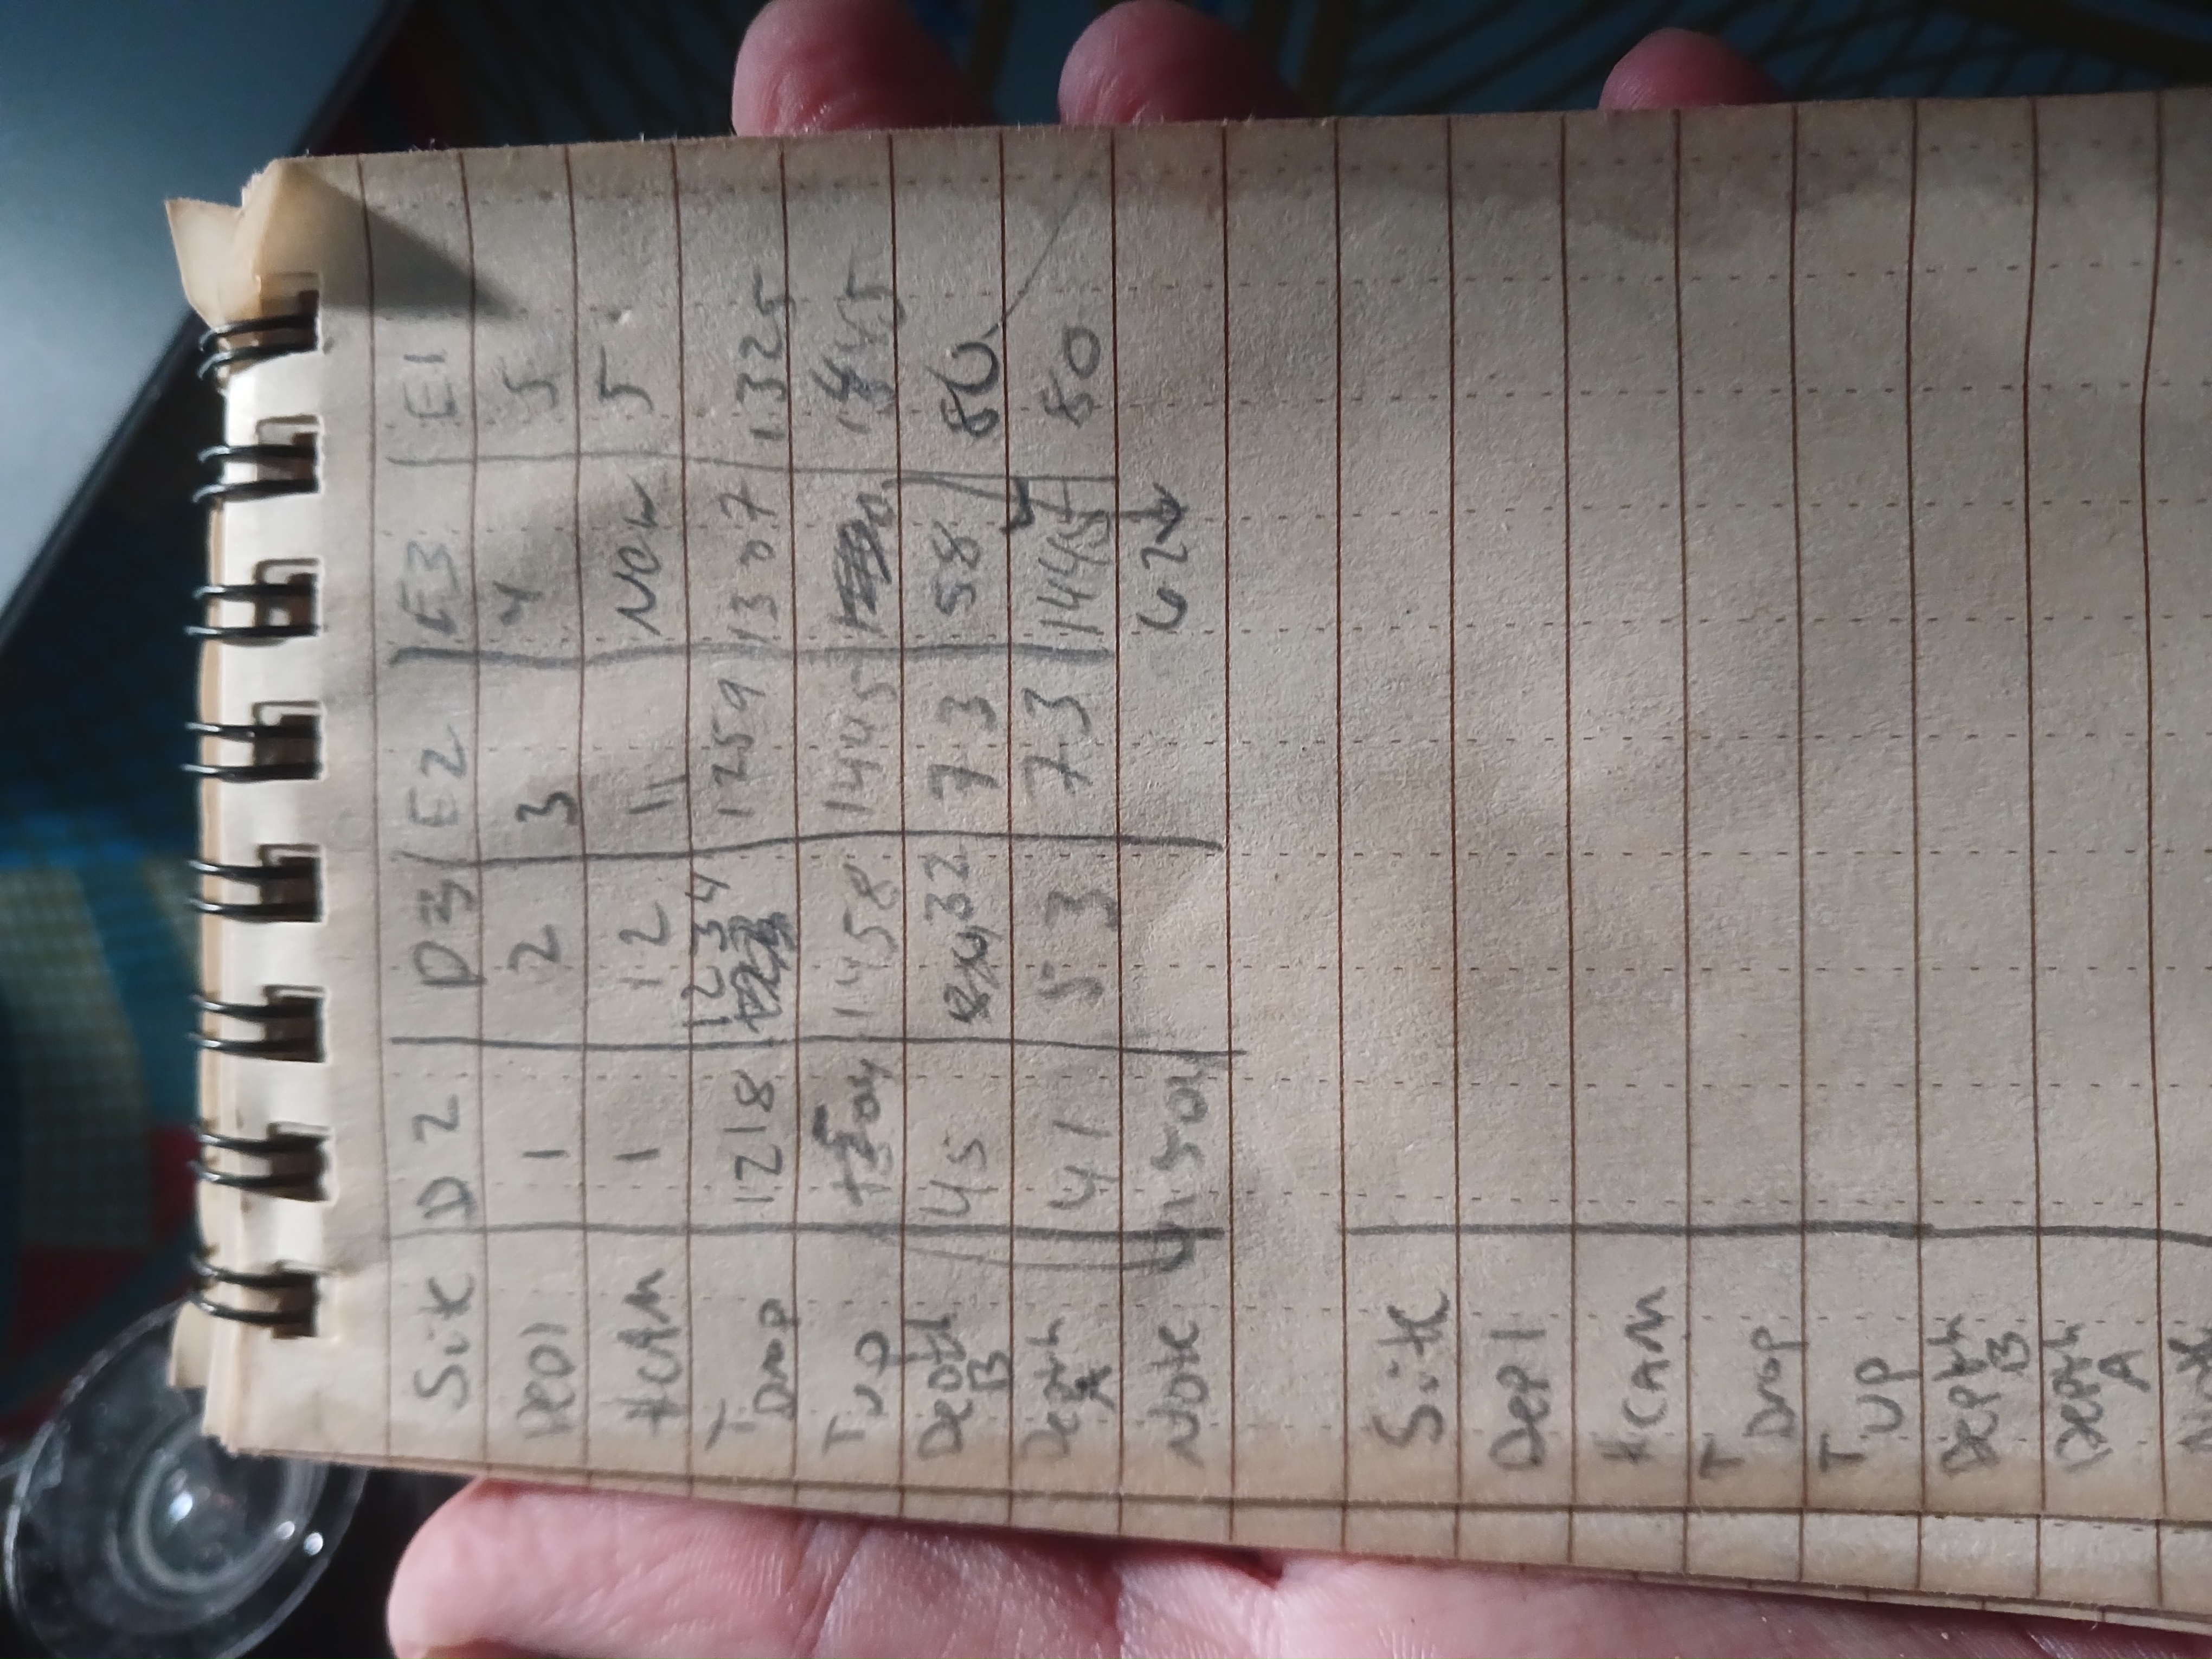 Site D2 D3 E2 E3 E1
Depl 1 2 3 4 5
#CAM 1 12 11 New 5
1234
T Drop 1218 1259 1307 1325
T up 1504 1458 1445 1445
Depth B 45 32 73 58 80
Depth A 41 53 73 1445 50
Note 1504 62
Site
Depl
#CAM
T Drop
T up
Depth B
Depth A
Note